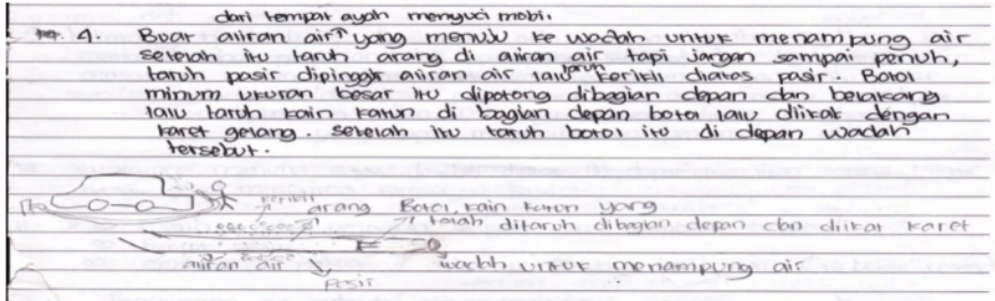 dari tempat ayah menyuci mobi.
4. Buat aliran air yang menuju ke wadah untuk menampung air
setelah itu taruh arang di aliran air tapi jangan sampai penuh,
taruh pasir dipinggir aliran air lalu taruh kerikil diatas pasir. Botol
minum ukuran besar itu dipotong dibagian depan dan belakang
lalu taruh kain katun di bagian depan botol lalu diikat dengan
karet gelang. setelah itu taruh botol itu di depan wadah
tersebut.
kerikil
arang Botol, kain katun yang
telah ditaruh dibagian depan dan diikat karet
aliran air wadah untuk menampung air
Pasir